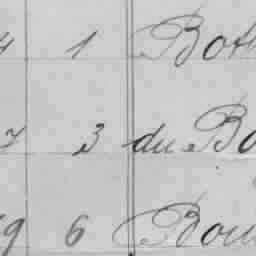 4 1 Bot
7 3 du Bo
9 6 Bou